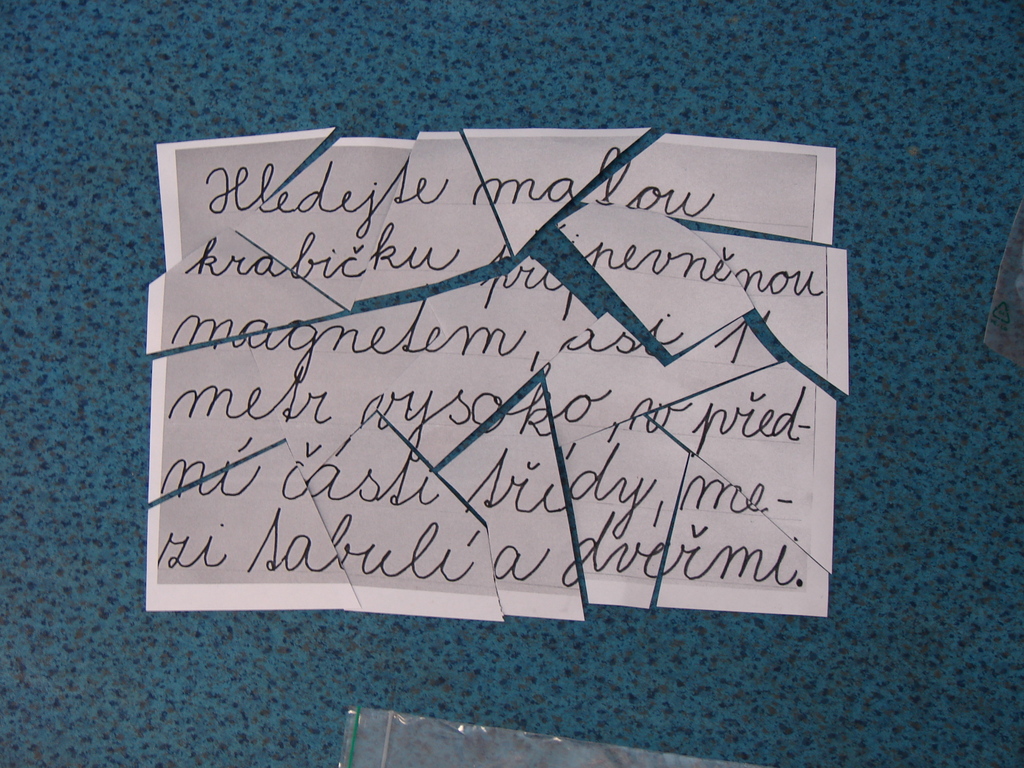 Hledejte malou
krabičku připevněnou
magnetem, asi 1
metr vysoko, v před-
ní části třídy, me-
zi tabulí a dveřmi.